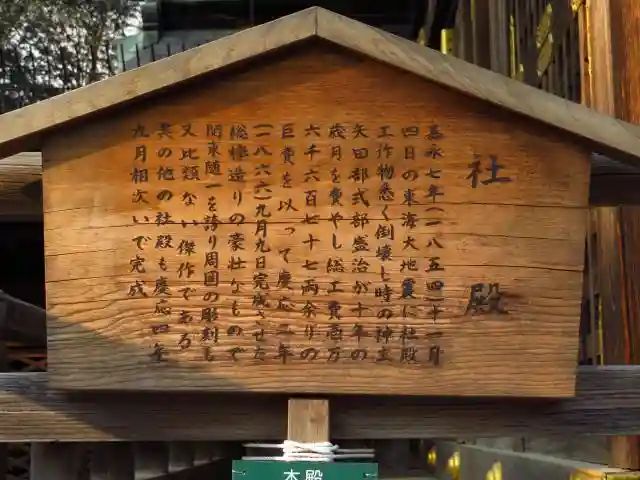 社殿
嘉永七年(一八五四)十一月
四日の東海大地震に社殿
工作物悉く倒壊し時の神主
矢田部式部盛治が十年の
歳月を費やし総工費壱万
六千六百七十七両余りの
巨費を以って慶応二年
(一八六六)九月九日完成させた
総欅造りの豪壮なもので
関東随一を誇り周囲の彫刻も
又比類ない傑作である
其の他の社殿も慶応四年
九月相次いで完成
本殿